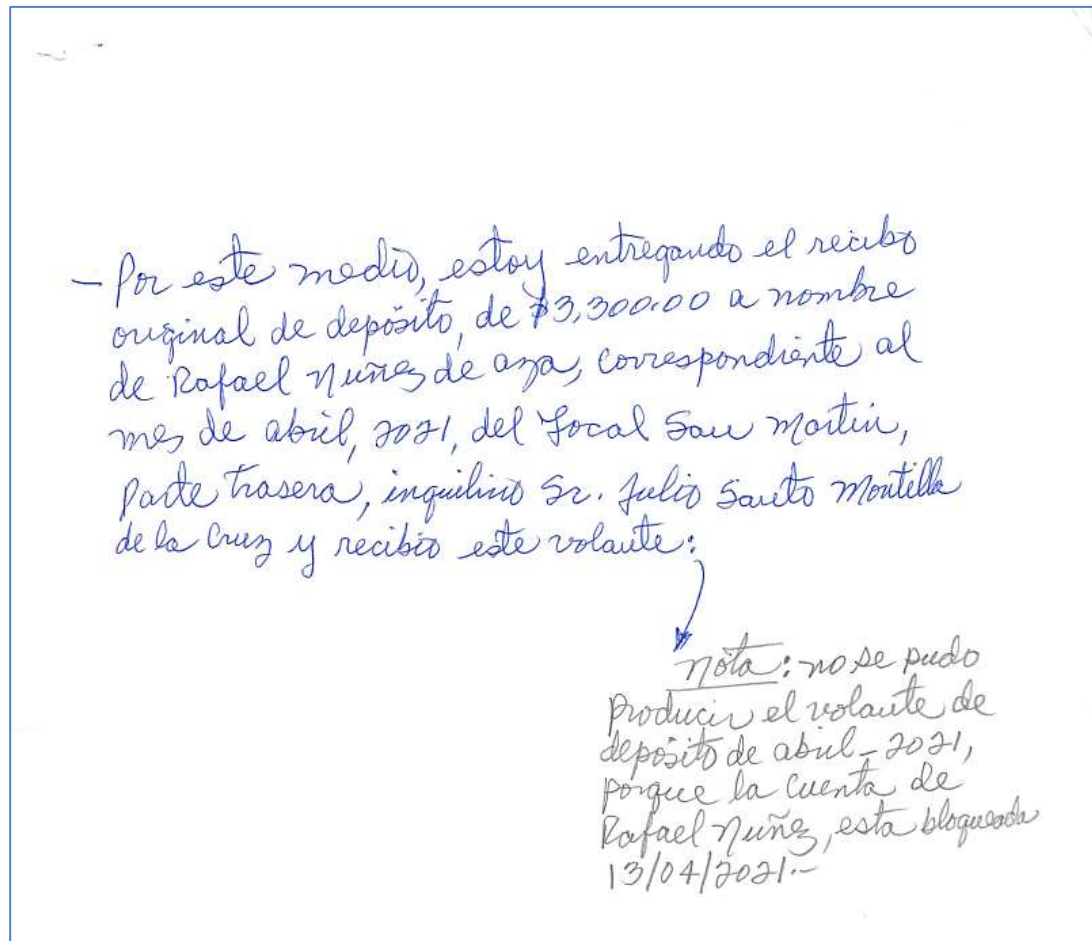 - Por este medio, estoy entregando el recibo
original de depósito, de $3,300.00 a nombre
de Rafael Nuñez de aza, correspondiente al
mes de abril, 2021, del Local San Martin,
parte trasera, inquilino Sr. Julio Santo Montilla
de la Cruz y recibio este volante:
nota: no se pudo
producir el volante de
depósito de abril-2021,
porque la cuenta de
Rafael Nuñez, esta bloqueada
13/04/2021.-